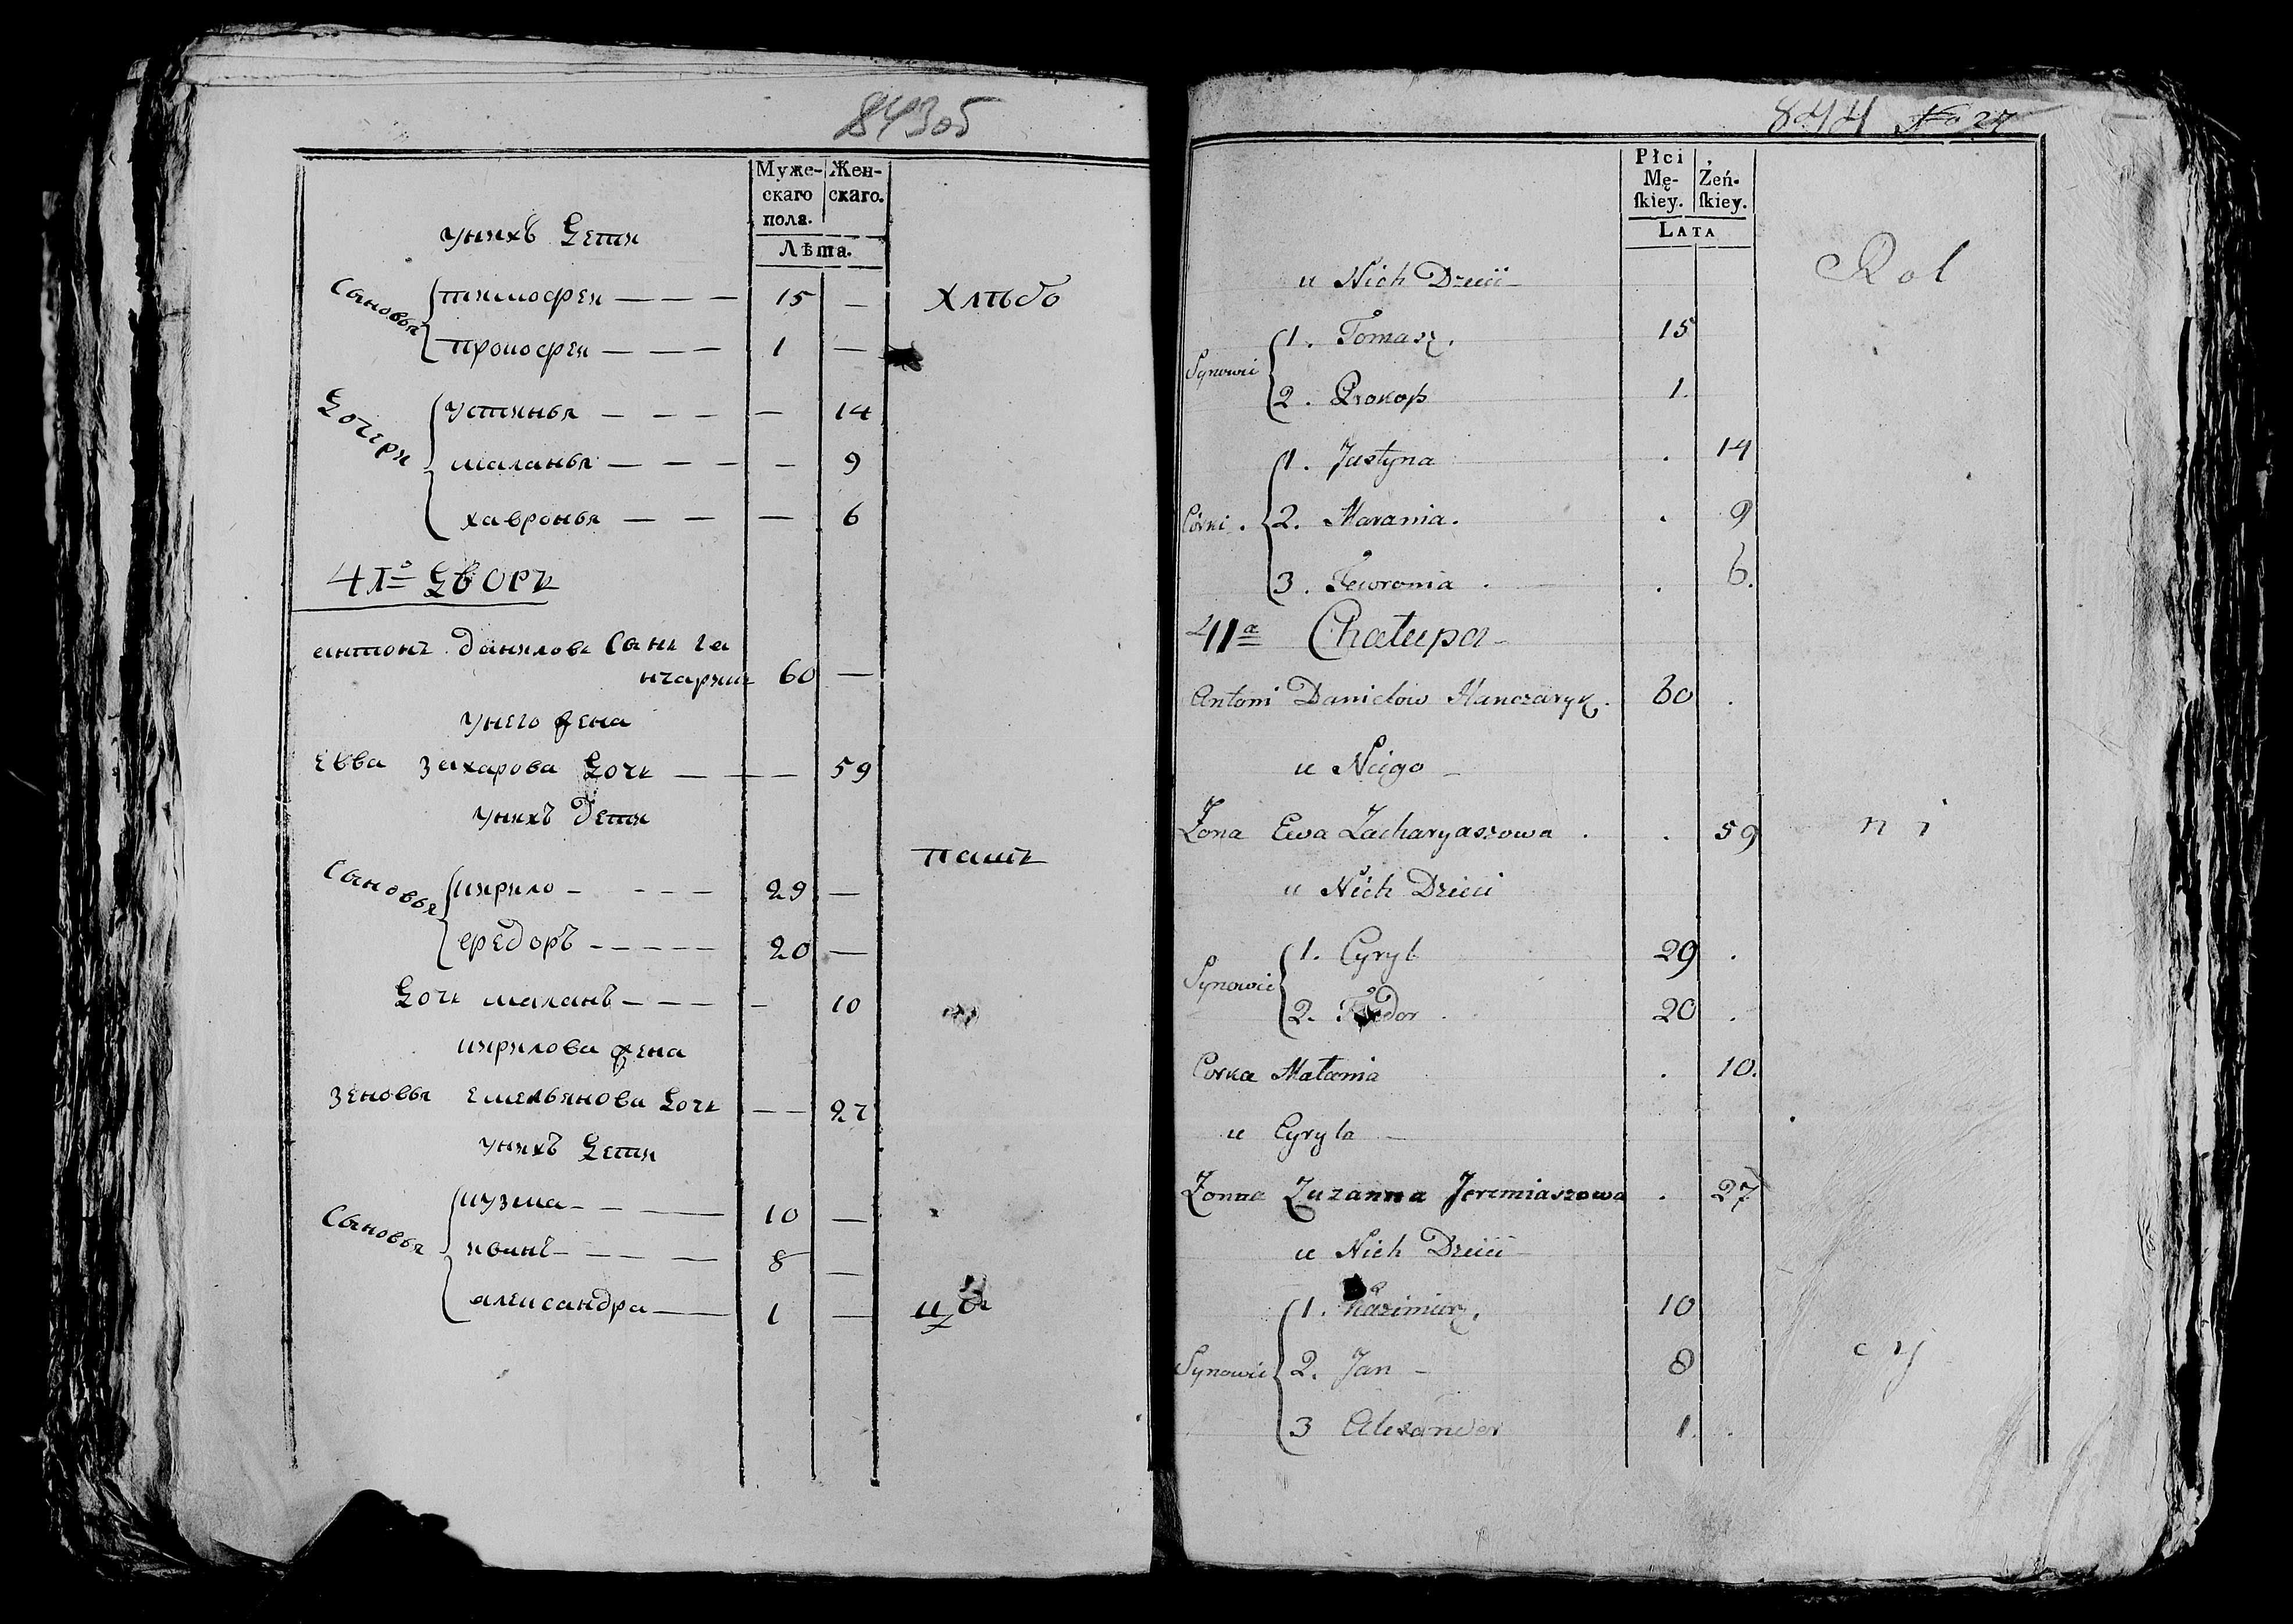 843об
Муже-
скаго
пола.
Жен-
скаго.
Лѣта.
унихъ Дети
Сановья
тимофеи — — — 15 —
прокофеи — — — 1 —
Хлѣбо
Дочери
устинья — — — — 14
маланья — — — — 9
хавронья — — — 6
41го Дворъ
антонъ данилове Санъ га
нчарикъ 60 —
унего жена
Евва захарова Дочь — — — 59
унихъ дети
пашъ
Сыновья
кирило — — — — 29 —
федоръ — — — — — 20 —
Дочь маланъ — — — — 10
кирилова жена
зеновья емельянова Дочь — — 27
унихъ Дети
Сыновья
кузма — — — 10 —
иванъ — — — — 8 —
александра — — 1 —
цы
844 No 27
Płci
Mę-
skiey.
Żeń-
skiey.
LATA
Rol
u Nich Dzieci
Synowie
1. Tomasz. 15
2. Prokop 1.
Córki.
1. Justyna . 14
2. Marania. . 9
3. Fewronia . . 6.
41a Chałupa
Antoni Danielow Hanczaryk. 60 .
u Niego
Zona Ewa Zacharyaszowa . . 59
n i
u Nich Dzieci
Synowie
1. Cyryl 29 .
2. Fiedor . 20 .
Corka Małania . 10.
u Cyryla
Zonna Zuzanna Jeremiaszowa . 27
u Nich Dzieci
Synowie
1. Kazimierz. 10
2. Jan 8
3 Alexander 1. .
c y